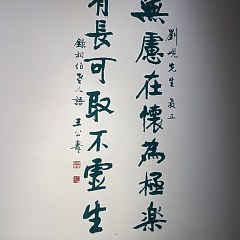 劉峴先生教正
無慮在懷為極樂
有長可取不虛生
錄相伯老人語 王公